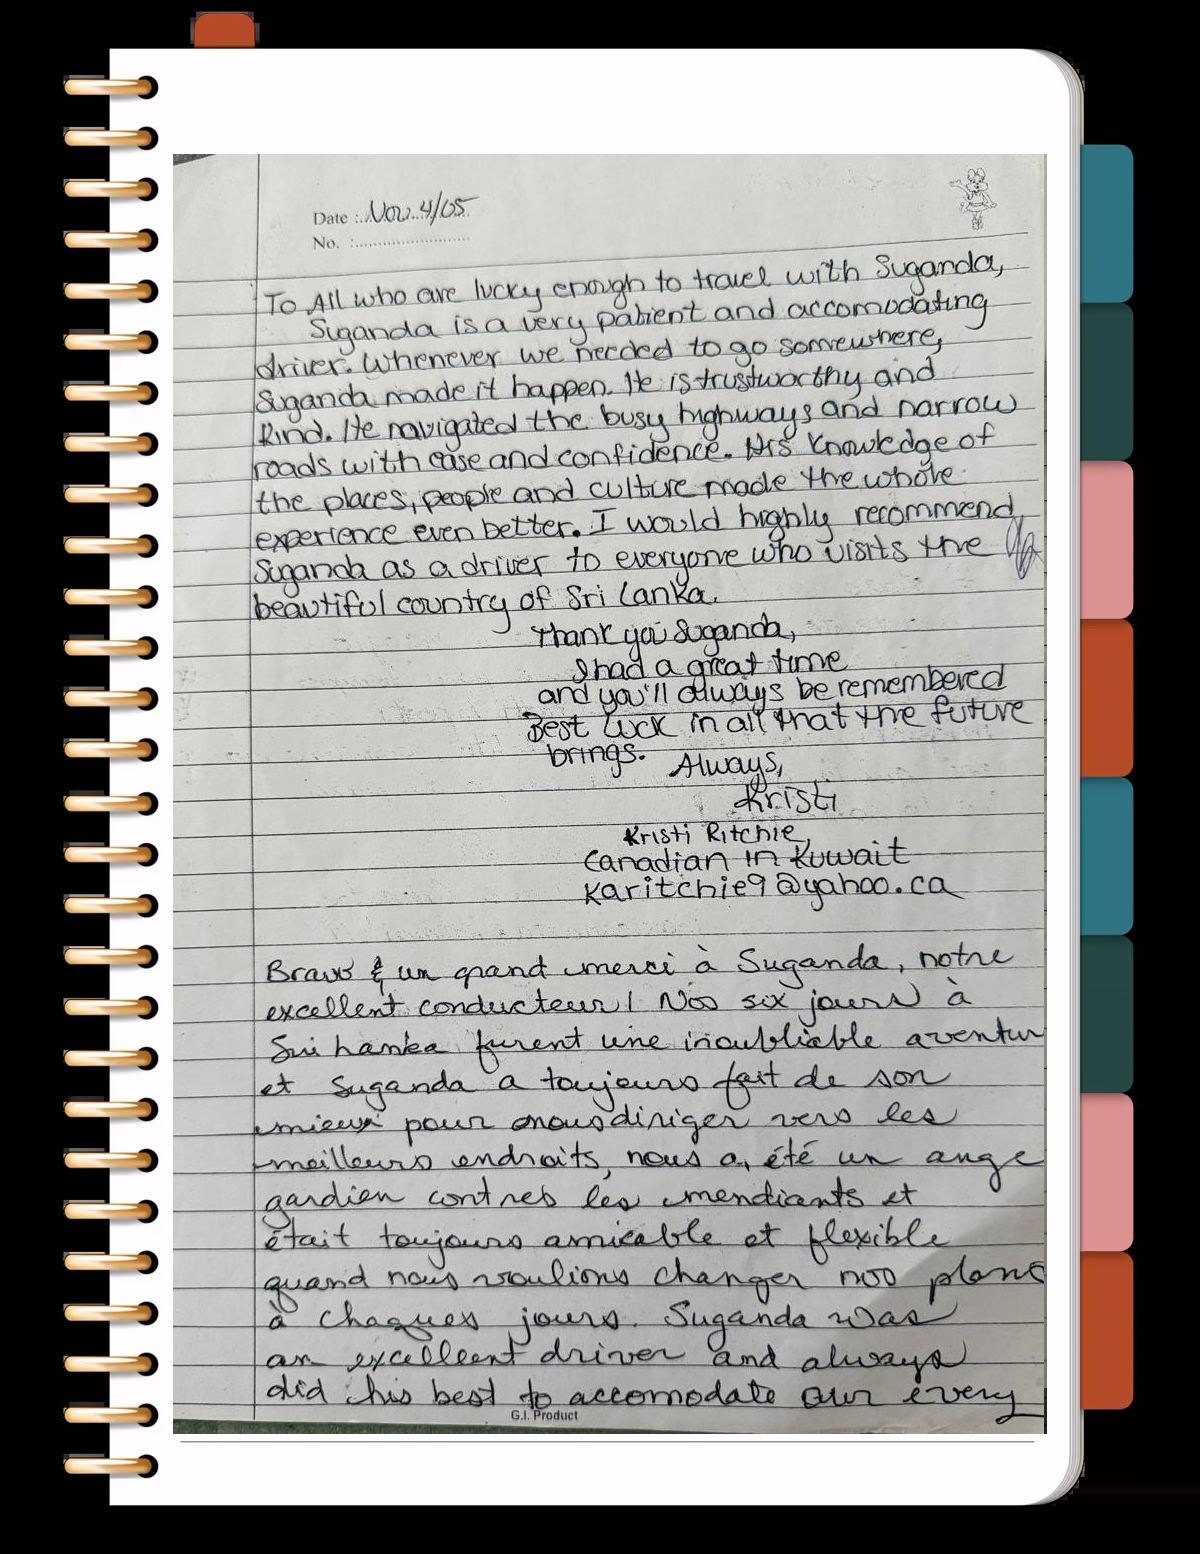 Date :..Nov..4/05.
No. :............................
To All who are lucky enough to travel with Suganda,
Suganda is a very patient and accomodating
driver. Whenever we needed to go somewhere,
Suganda made it happen. He is trustworthy and
kind. He navigated the busy highways and narrow
roads with ease and confidence. His knowledge of
the places, people and culture made the whole
experience even better. I would highly recommend
Suganda as a driver to everyone who visits the
beautiful country of Sri Lanka.
Thank you Suganda,
I had a great time
and you'll always be remembered
Best luck in all that the future
brings.
Always,
Kristi
Kristi Ritchie,
Canadian in Kuwait
Karitchie9@yahoo.ca
Bravo & un grand merci à Suganda, notre
excellent conducteur! Nos six jours à
Sri Lanka furent une inoubliable aventur
et Suganda a toujours fait de son
mieux pour nous diriger vers les
meilleurs endroits, nous a été un ange
gardien contres les mendiants et
était toujours amicable et flexible
quand nous voulions changer nos plans
à chaques jours. Suganda was
an excellent driver and always
did his best to accomodate our every
G.I. Product